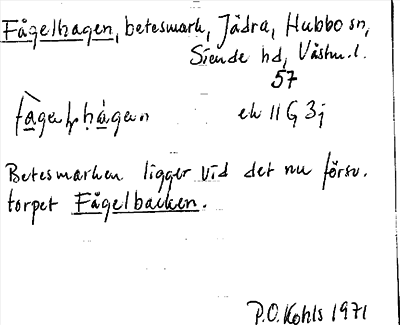 Fågelhagen, betesmark, Jädra, Hubbo sn,
Siende hd, Västm. l.
57
ek 11 G 3j
Betesmarken ligger vid det nu försv.
torpet Fågelbacken.
P.O. Kohls 1971